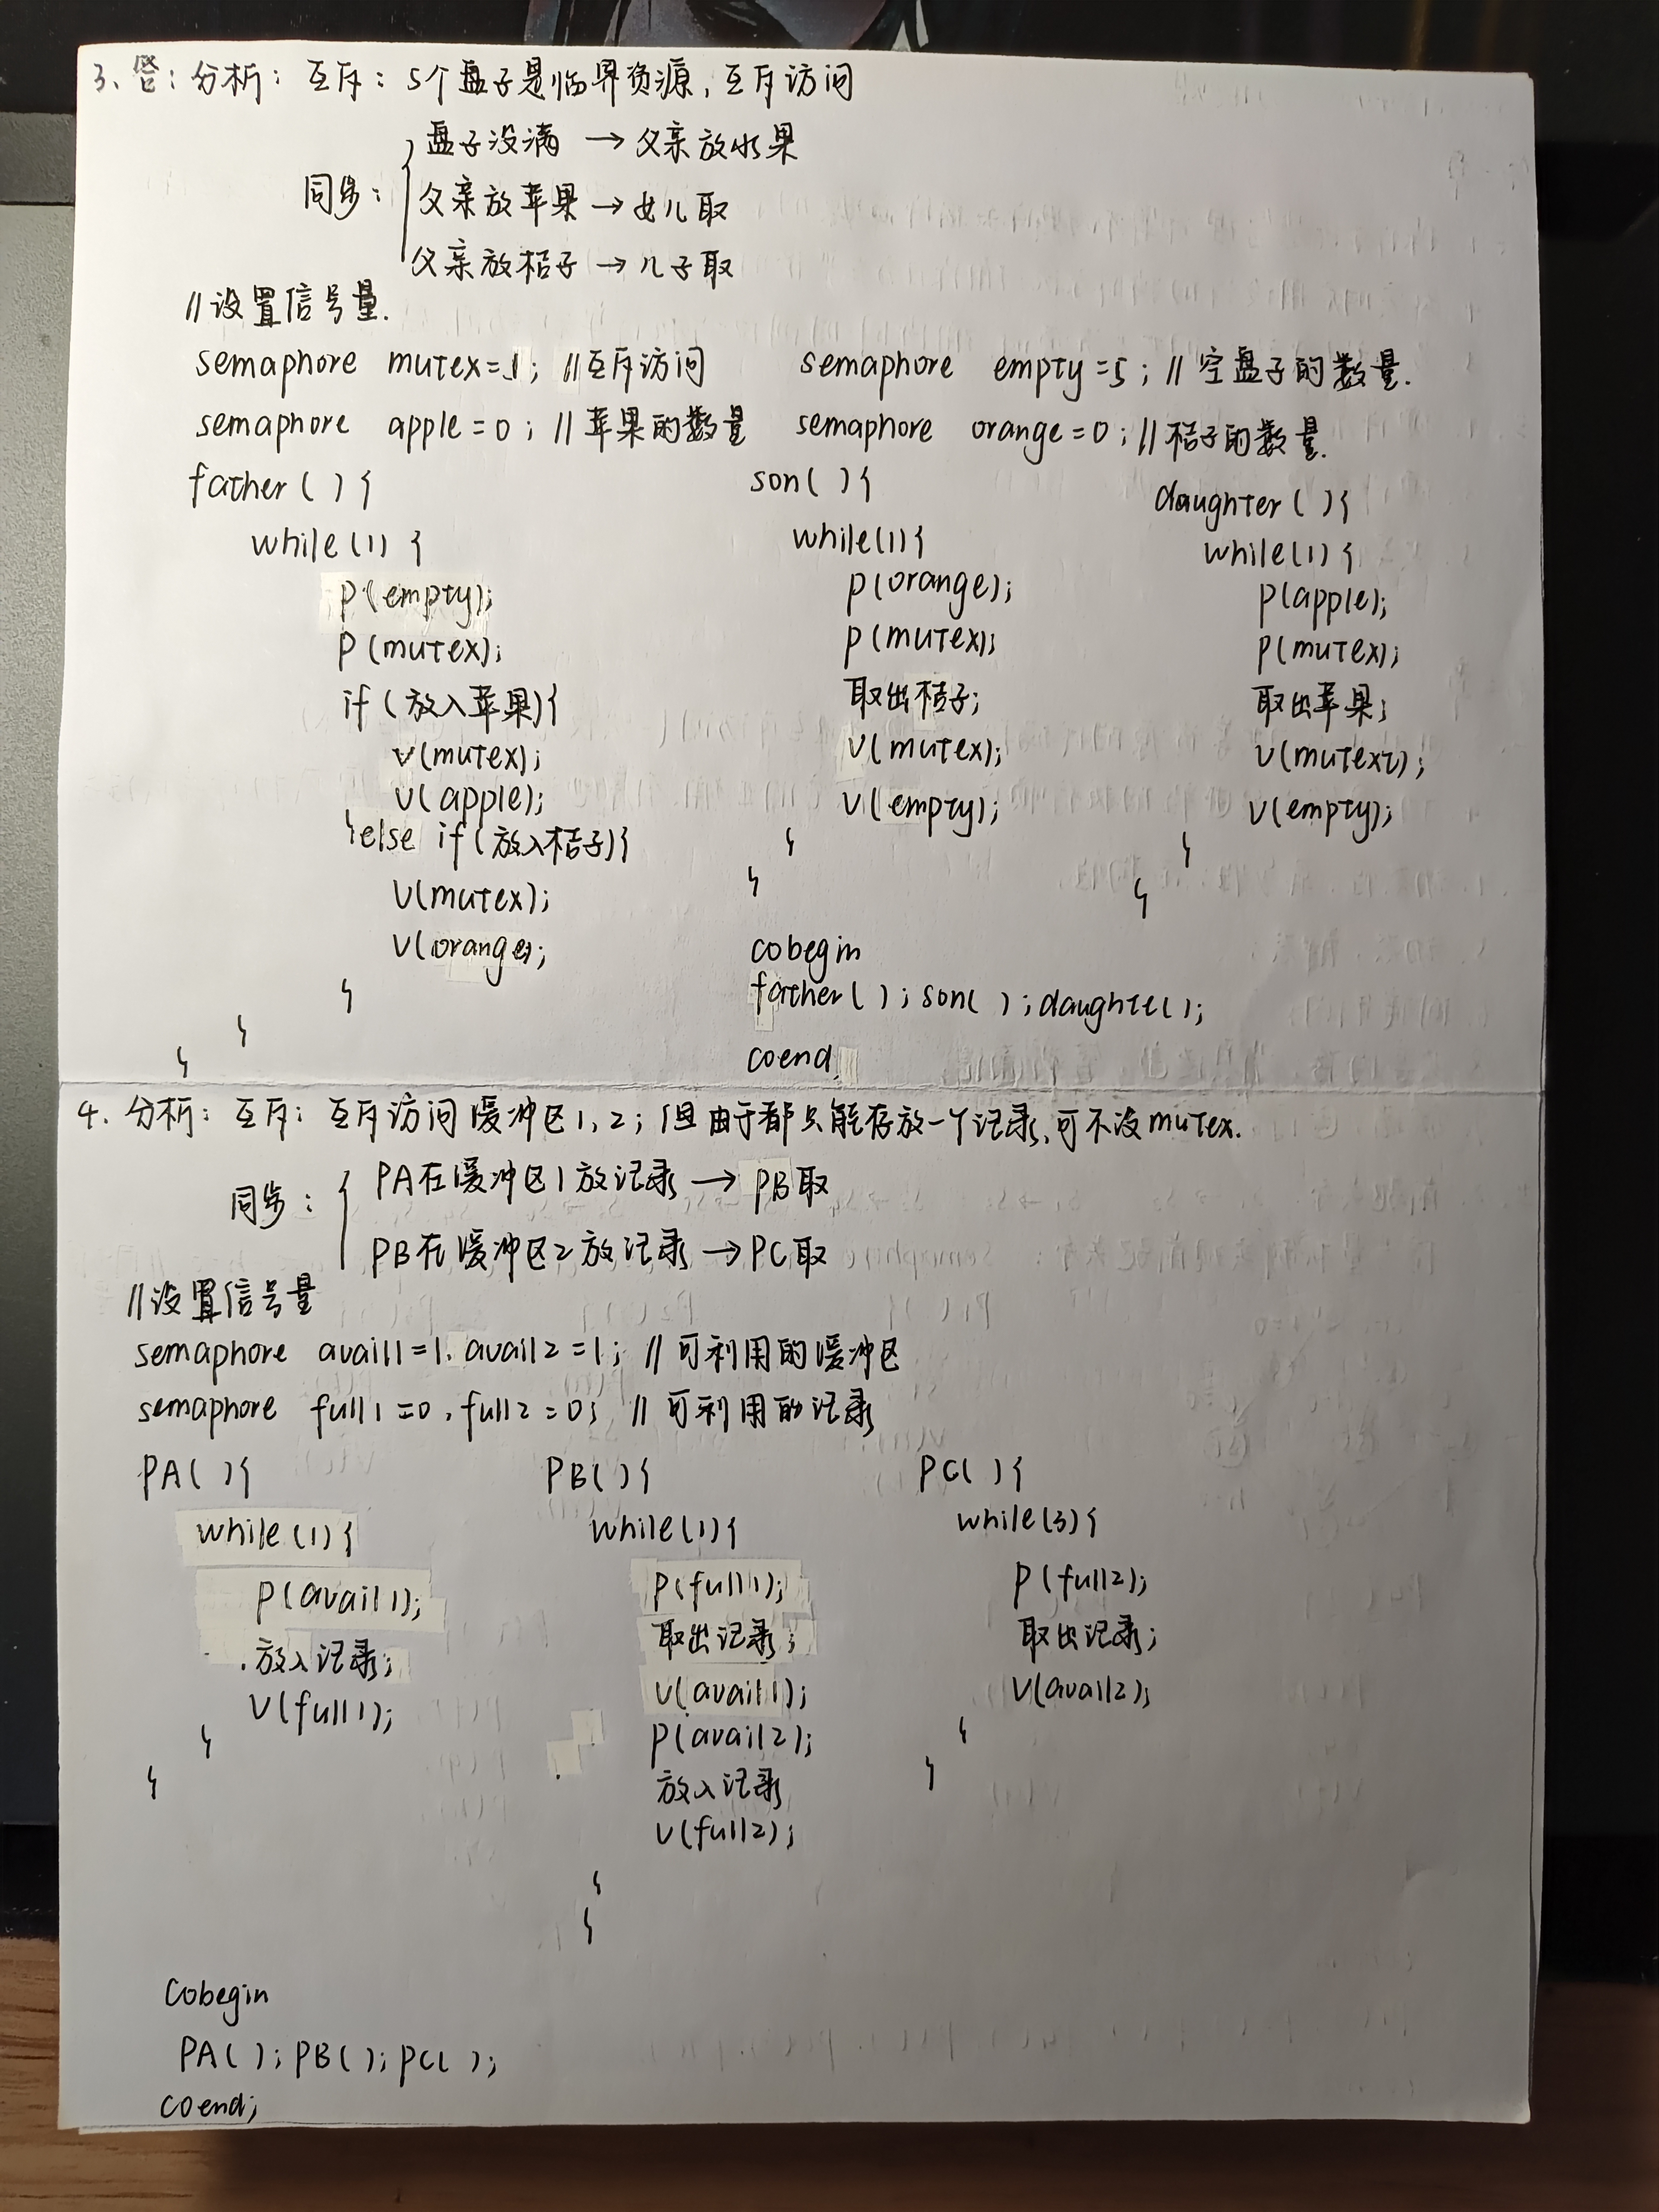 3、答：分析：互斥：5个盘子是临界资源，互斥访问
盘子没满 → 父亲放水果
同步： 父亲放苹果 → 女儿取
父亲放桔子 → 儿子取
//设置信号量.
semaphore mutex=1; //互斥访问 semaphore empty=5; // 空盘子的数量.
semaphore apple=0; //苹果的数量 semaphore orange=0; //桔子的数量.
father( ){
while(1) {
p(empty);
p(mutex);
if(放入苹果){
v(mutex);
v(apple);
}else if(放入桔子){
v(mutex);
v(orange);
}
}
}
son( ){
while(1){
p(orange);
p(mutex);
取出桔子;
v(mutex);
v(empty);
}
}
daughter( ){
while(1){
p(apple);
p(mutex);
取出苹果;
v(mutext);
v(empty);
}
}
cobegin
father( ); son( ); daughte( );
coend
4. 分析：互斥：互斥访问缓冲区1,2; 但由于都只能存放一个记录,可不设mutex.
同步： PA在缓冲区1放记录 → PB取
PB在缓冲区2放记录 → PC取
//设置信号量
semaphore avail1=1, avail2=1; // 可利用的缓冲区
semaphore full1=0, full2=0; // 可利用的记录
PA( ){
while(1){
p(avail1);
放入记录;
v(full1);
}
}
PB( ){
while(1){
p(full1);
取出记录;
v(avail1);
p(avail2);
放入记录
v(full2);
}
}
PC( ){
while(3){
p(full2);
取出记录;
v(avail2);
}
}
cobegin
PA( ); PB( ); PC( );
coend;